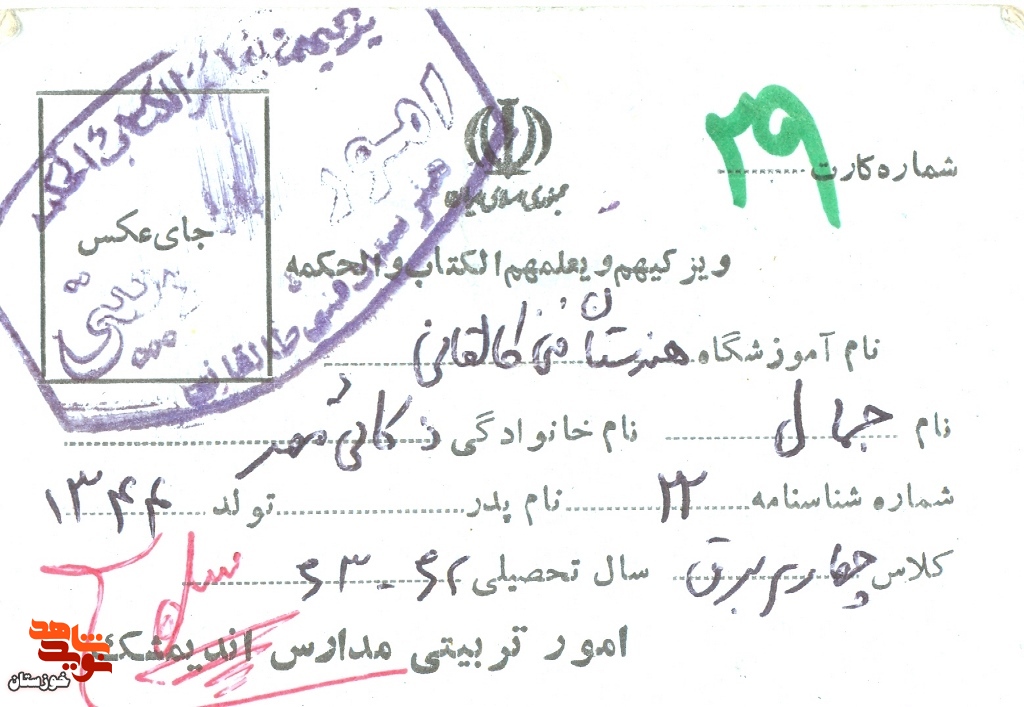 شماره کارت ۲۹
جمهوری اسلامی ایران
جای عکس
و یزکیهم و یعلمهم الکتاب والحکمه
نام آموزشگاه هنرستان فنی طالقانی
نام جمال نام خانوادگی ذکائی مهر
شماره شناسنامه ۲۲ نام پدر تولد ۱۳۴۴
کلاس چهارم برق سال تحصیلی ۶۲ - ۶۳
امور تربیتی مدارس اندیمشک
امور
فنی طالقانی
نوید شاهد
خوزستان